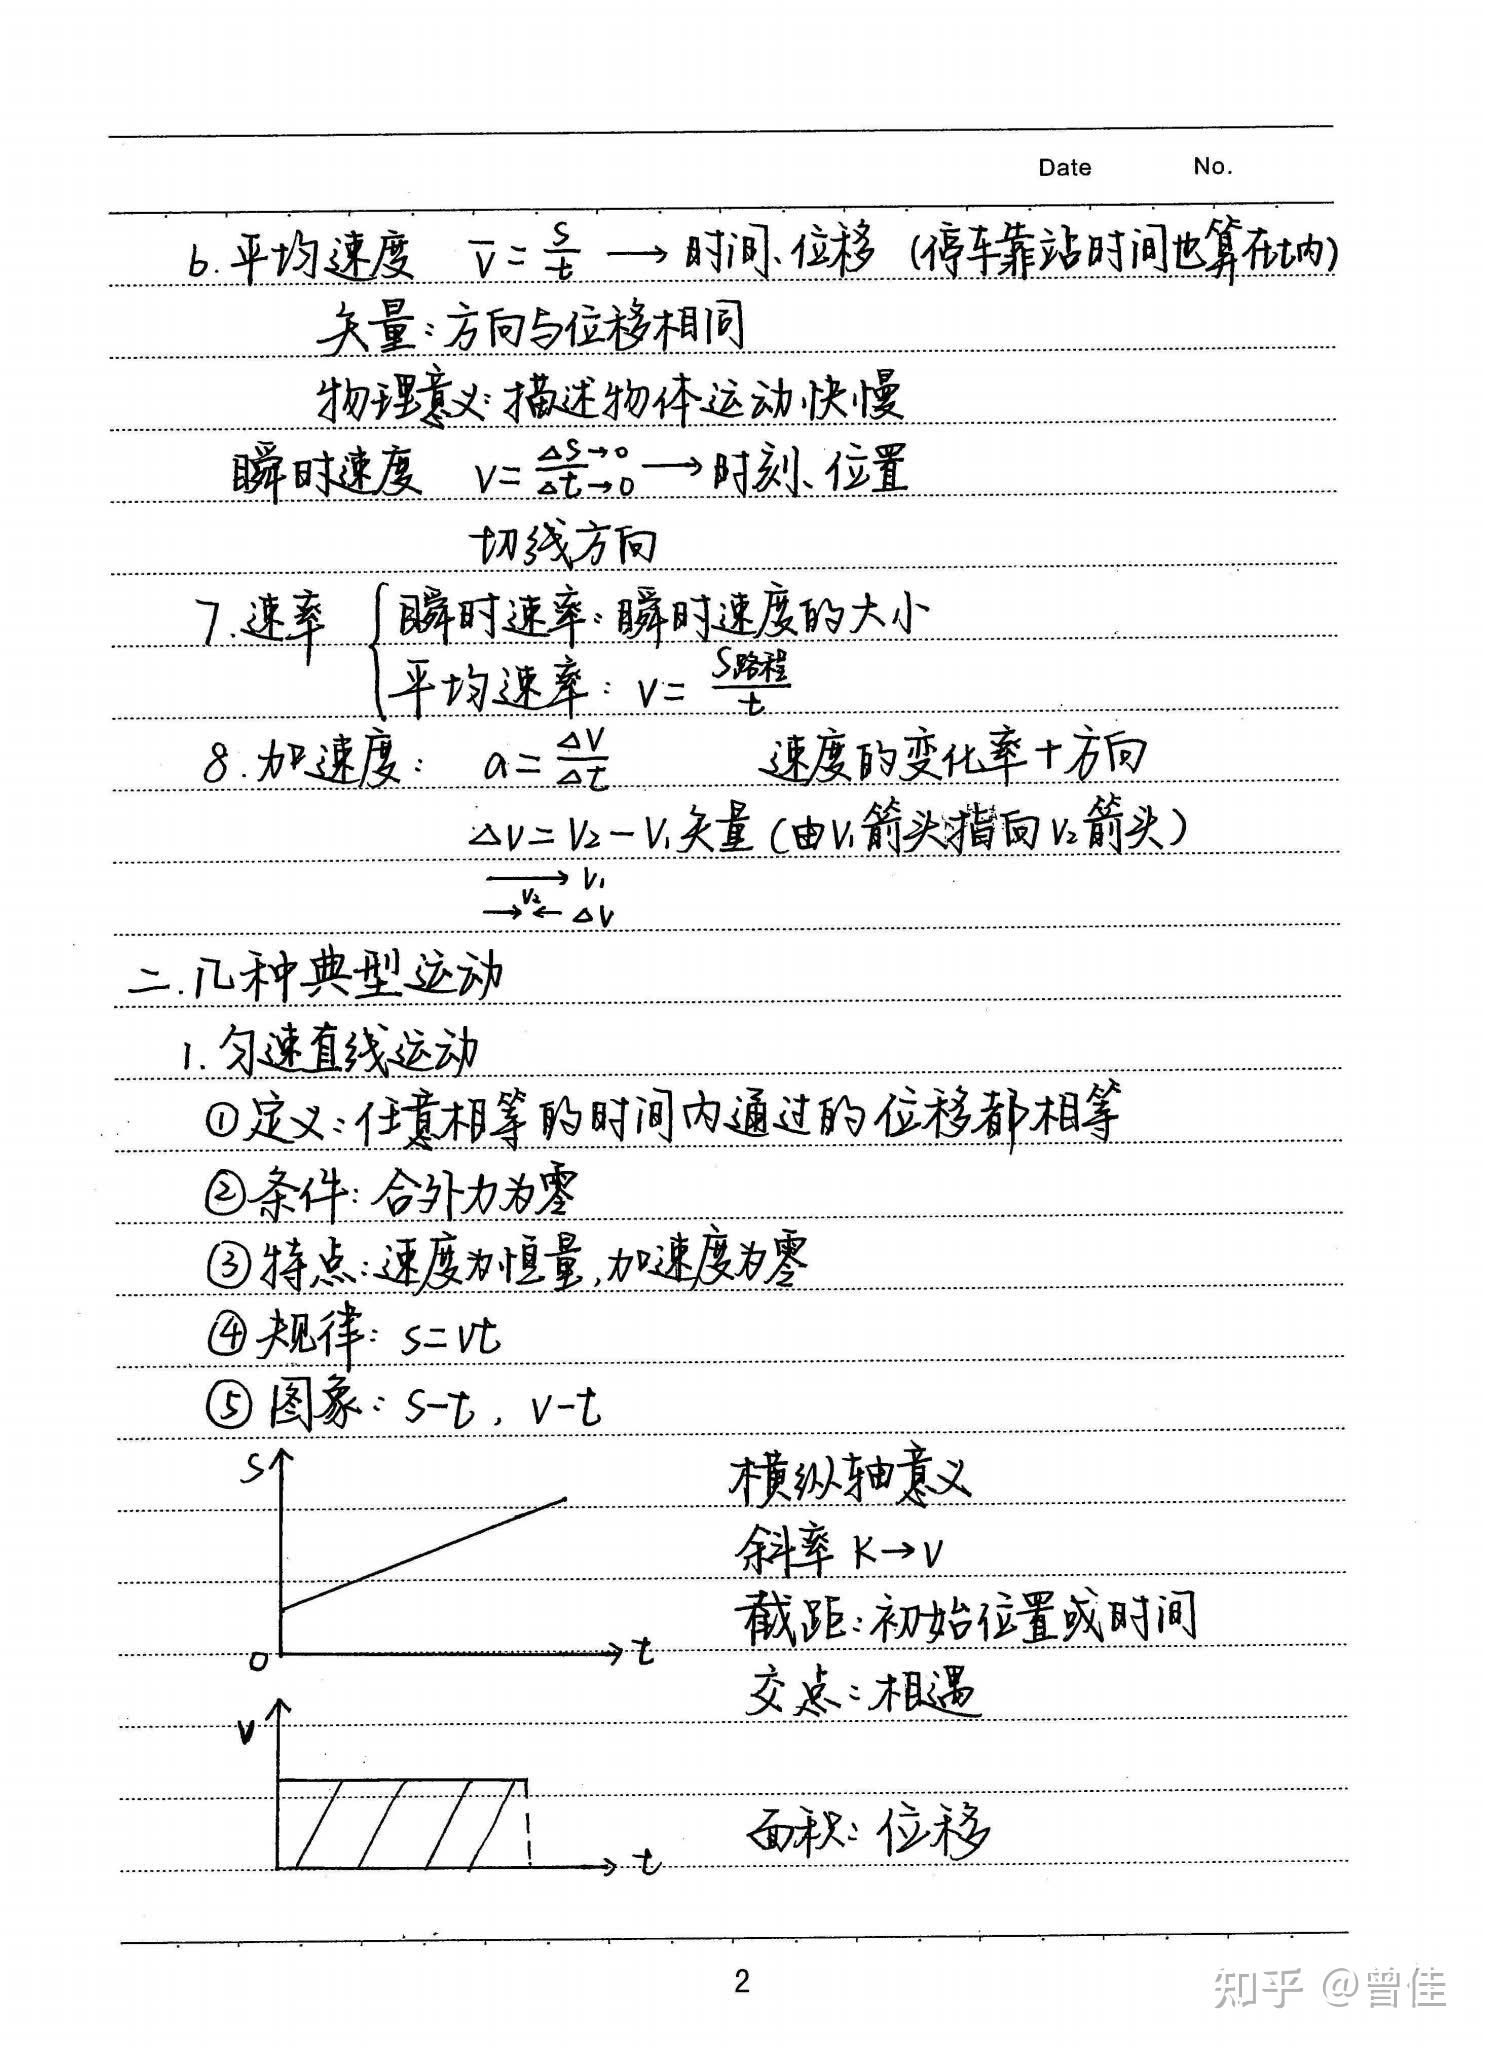 Date No.
6.平均速度 v̄=s/t → 时间、位移 (停车靠站时间也算在t内)
矢量:方向与位移相同
物理意义:描述物体运动快慢
瞬时速度 v=Δs→0/Δt→0 → 时刻、位置
切线方向
7.速率 { 瞬时速率:瞬时速度的大小
平均速率: v=s路程/t
8.加速度: a=Δv/Δt 速度的变化率+方向
Δv=v₂-v₁ 矢量 (由v₁箭头指向v₂箭头)
→ v₁
v₂
→← Δv
二.几种典型运动
1.匀速直线运动
①定义:任意相等的时间内通过的位移都相等
②条件:合外力为零
③特点:速度为恒量,加速度为零
④规律: s=vt
⑤图象: s-t, v-t
s
横纵轴意义
斜率 K→v
截距:初始位置或时间
0 t
交点:相遇
v
面积:位移
t
2
知乎 @曾佳